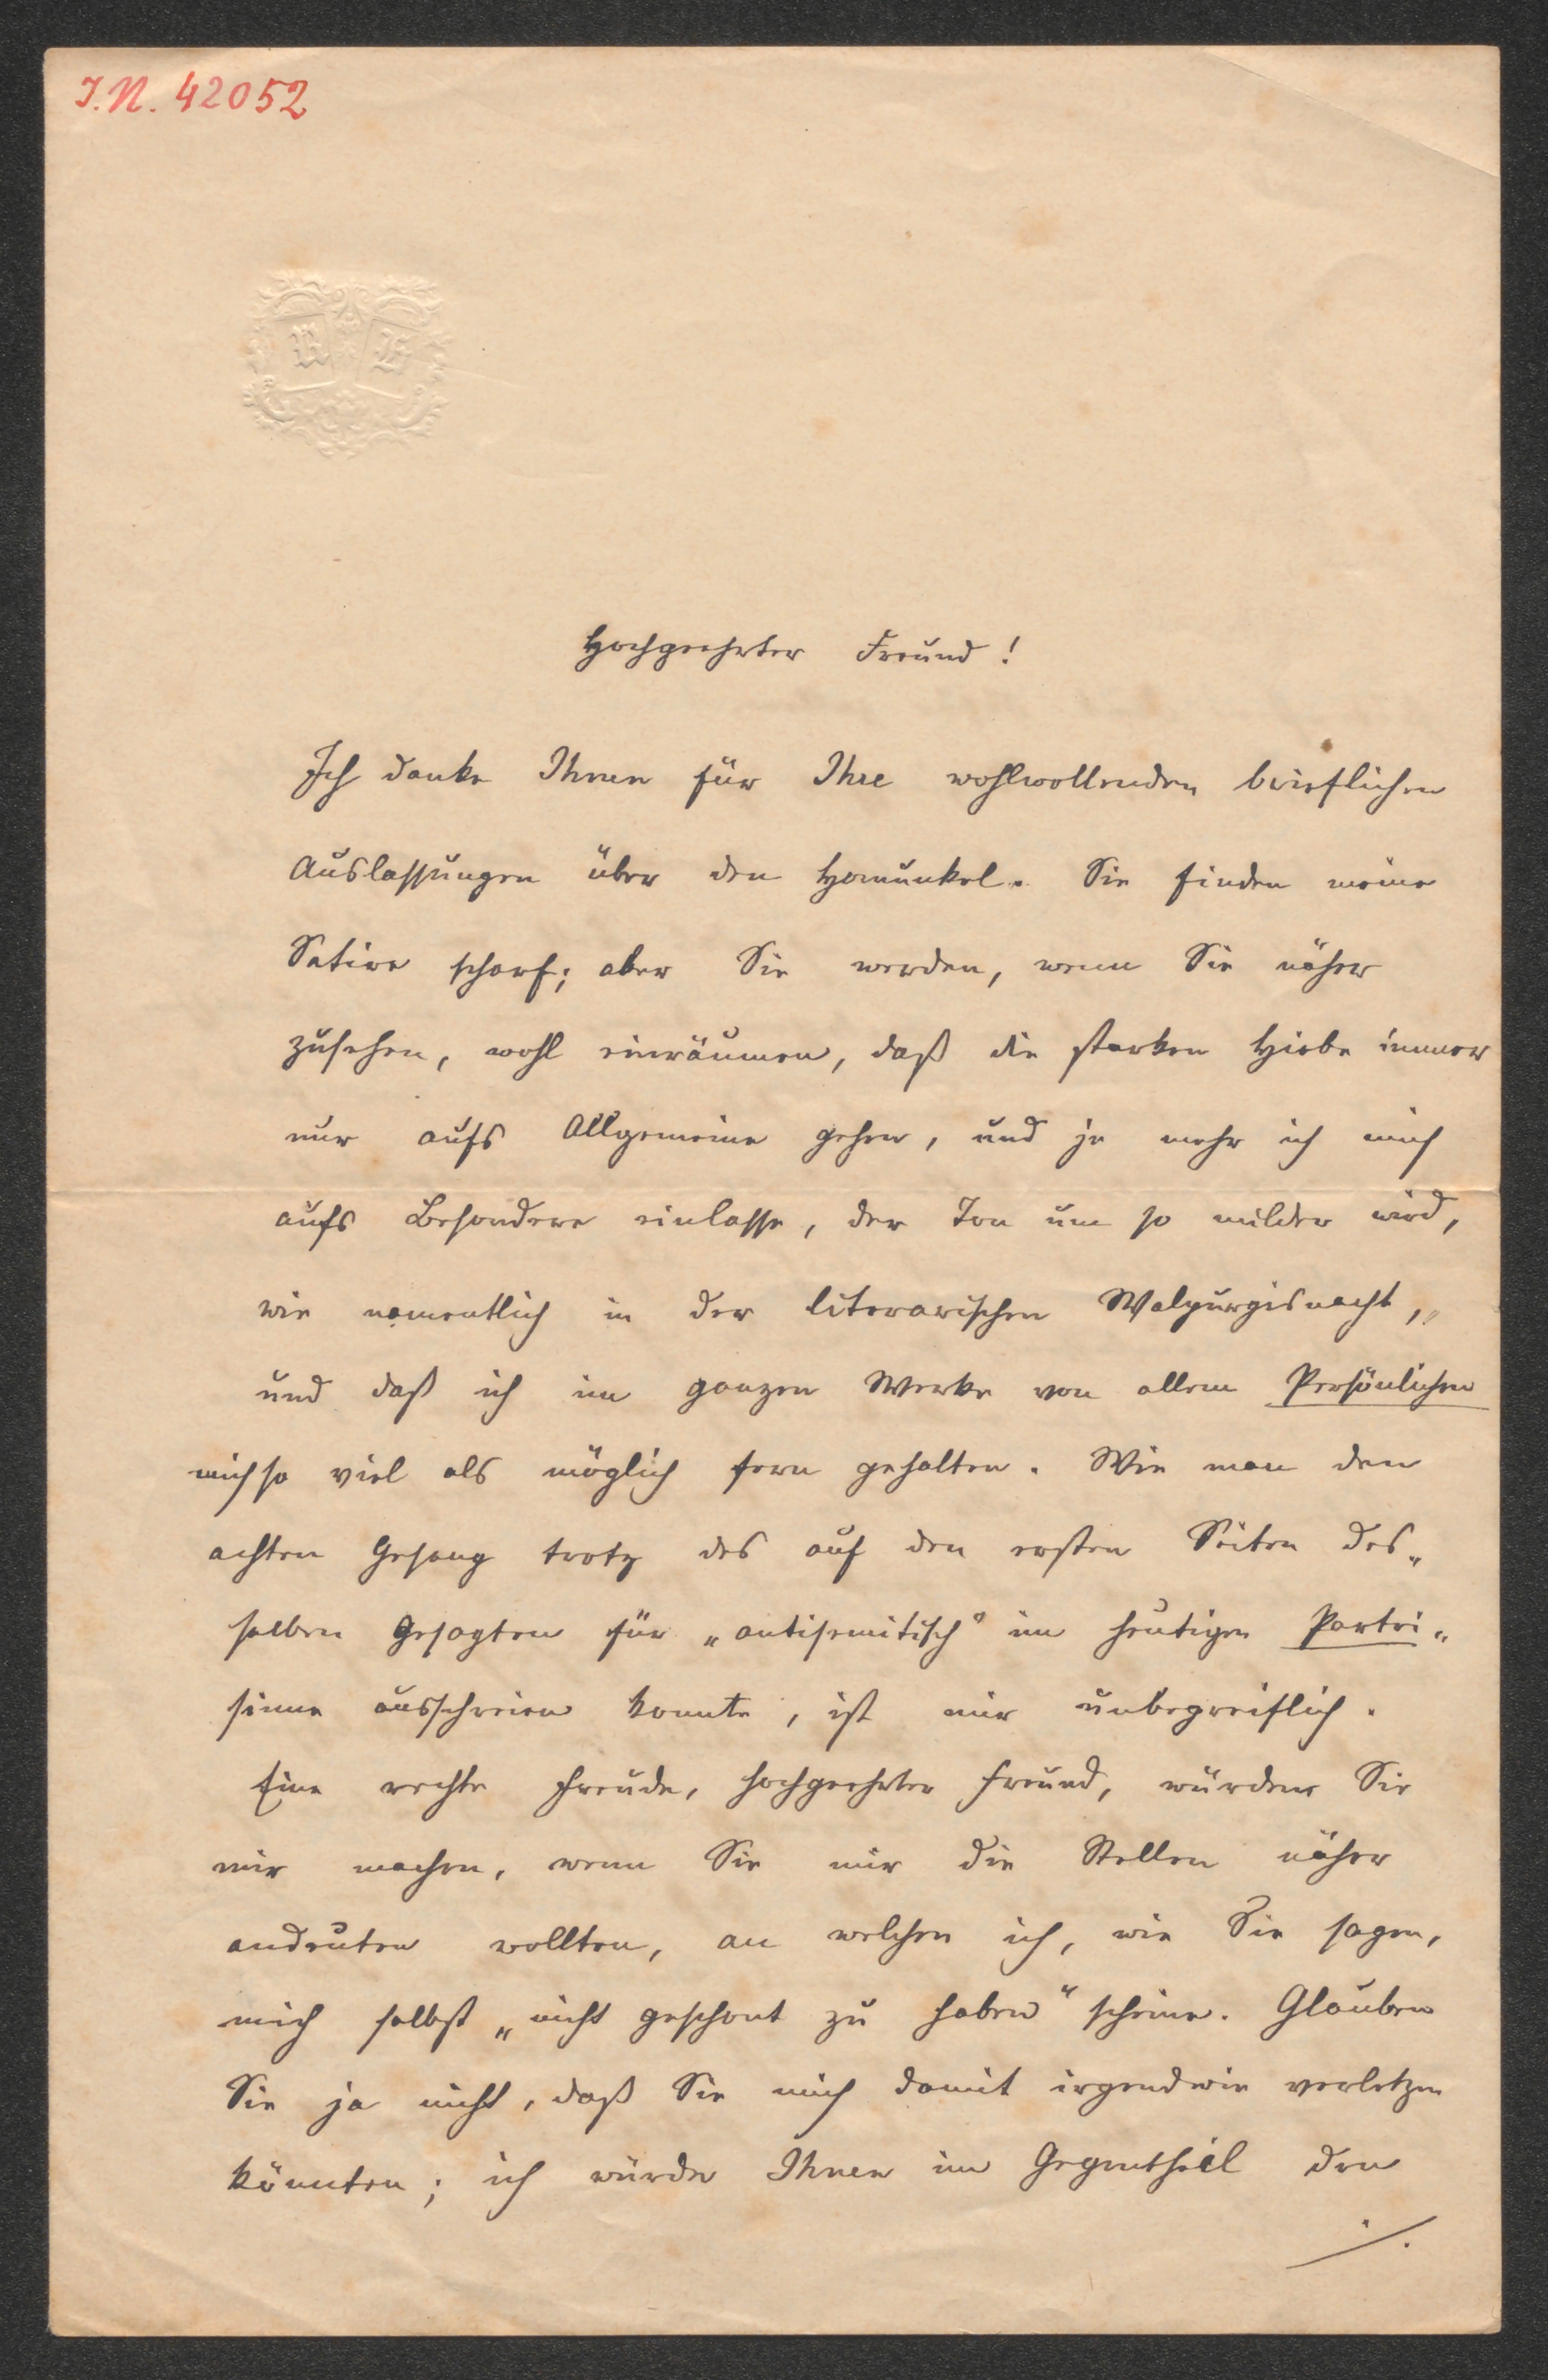 I.N. 42052
Hochgeehrter Freund!
Ich danke Ihnen für Ihre wohlwollenden brieflichen
Auslassungen über den Homunkel. Sie finden meine
Satire scharf; aber Sie werden, wenn Sie näher
zusehen, wohl einräumen, daß die starken Hiebe immer
nur aufs Allgemeine gehen, und je mehr ich mich
aufs Besondere einlasse, der Ton um so milder wird,
wie namentlich in der literarischen Walpurgisnacht,
und daß ich im ganzen Werke von allem Persönlichen
mich so viel als möglich fern gehalten. Wie man den
achten Gesang trotz des auf den ersten Seiten des„
selben Gesagten für „antisemitisch“ im heutigen Partei„
sinne ausschreien konnte, ist mir unbegreiflich.
Eine rechte Freude, hochgeehrter Freund, würden Sie
mir machen, wenn Sie mir die Stellen näher
andeuten wollten, an welchen ich, wie Sie sagen,
mich selbst „nicht geschont zu haben“ scheine. Glauben
Sie ja nicht, daß Sie mich damit irgendwie verletzen
könnten; ich würde Ihnen im Gegentheil den
./.